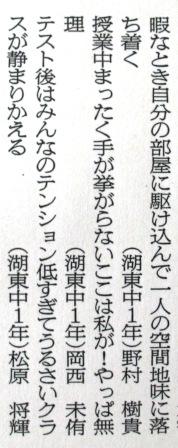 暇なとき自分の部屋に駆け込んで一人の空間地味に落
ち着く　　　　　　（湖東中１年）野村　樹貴
授業中まったく手が挙がらないここは私が！やっぱ無
理　　　　　　　　（湖東中１年）岡西　未侑
テスト後はみんなのテンション低すぎてうるさいクラ
スが静まりかえる　（湖東中１年）松原　将輝